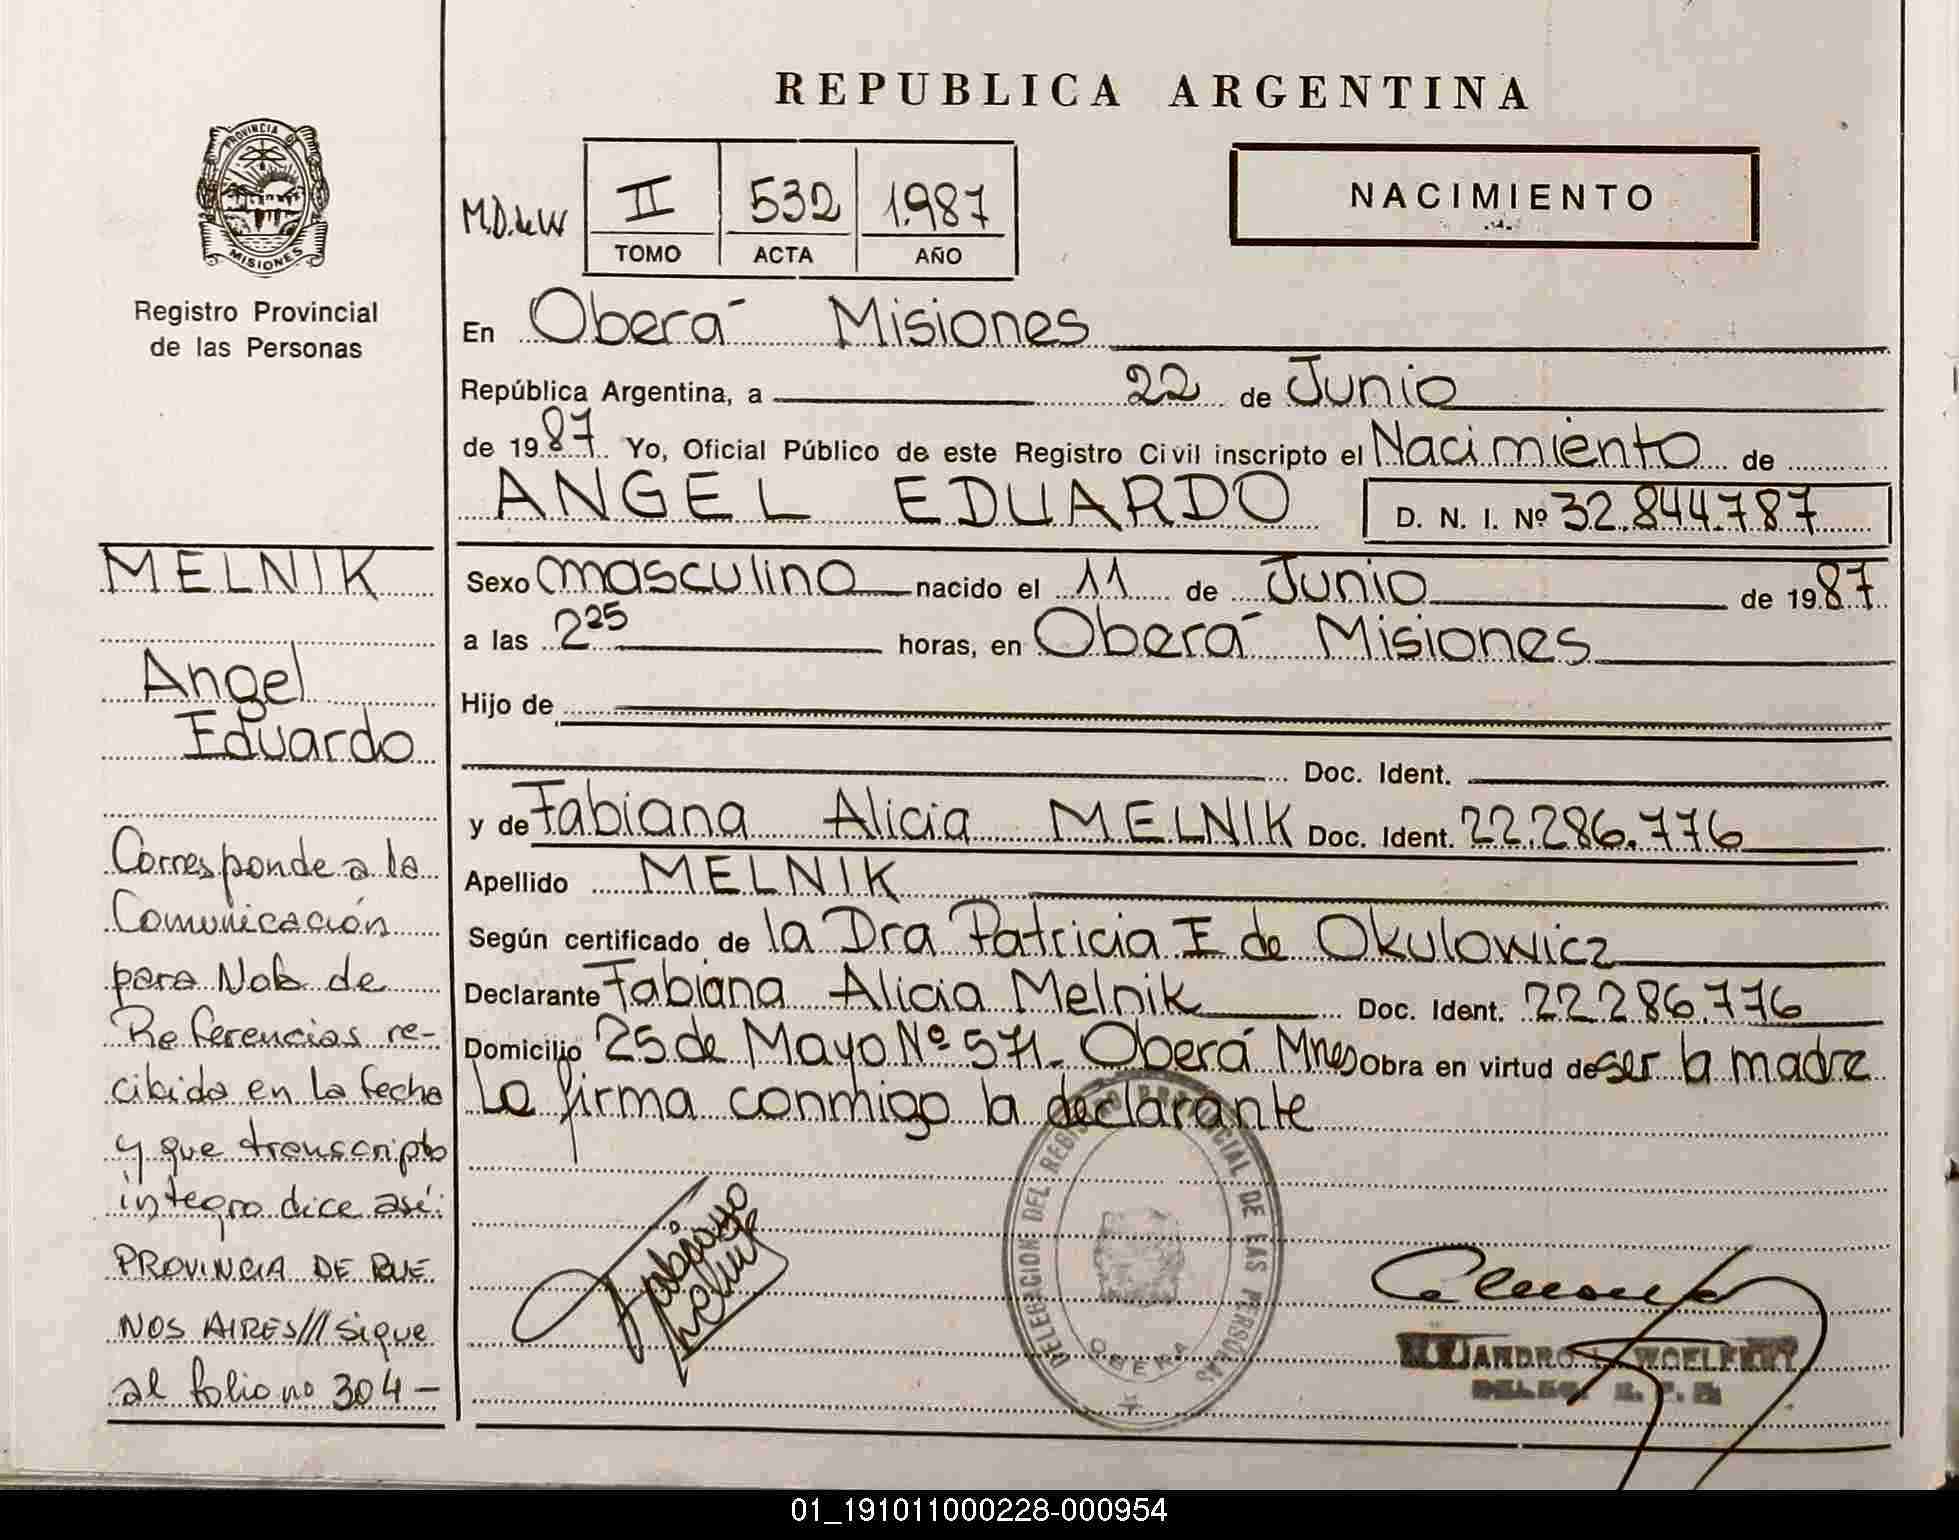 REPUBLICA ARGENTINA
PROVINCIA DE
MISIONES
Registro Provincial
de las Personas
M.D. de W
II 532 1.987
TOMO ACTA AÑO
NACIMIENTO
En Oberá Misiones
República Argentina, a 22 de Junio
de 1987. Yo, Oficial Público de este Registro Civil inscripto el Nacimiento de
ANGEL EDUARDO D. N. I. Nº 32.844.787
Sexo masculino nacido el 11 de Junio de 1987
a las 2 25 horas, en Oberá Misiones
Hijo de
Doc. Ident.
y de Fabiana Alicia MELNIK Doc. Ident. 22.286.776
Apellido MELNIK
Según certificado de la Dra Patricia I de Okulowicz
Declarante Fabiana Alicia Melnik Doc. Ident. 22.286.776
Domicilio 25 de Mayo Nº 571- Oberá Mnes Obra en virtud de ser la madre
La firma conmigo la declarante
MELNIK
Angel
Eduardo
Corresponde a la
Comunicación
para Nob de
Referencias re-
cibida en la fecha
y que transcripto
íntegro dice así:
PROVINCIA DE BUE
NOS AIRES/// sigue
al folio no 304-
Fabiana
Melnik
DELEGACION DEL REGISTRO PROVINCIAL DE LAS PERSONAS
OBERA
WOELFERT
01_191011000228-000954